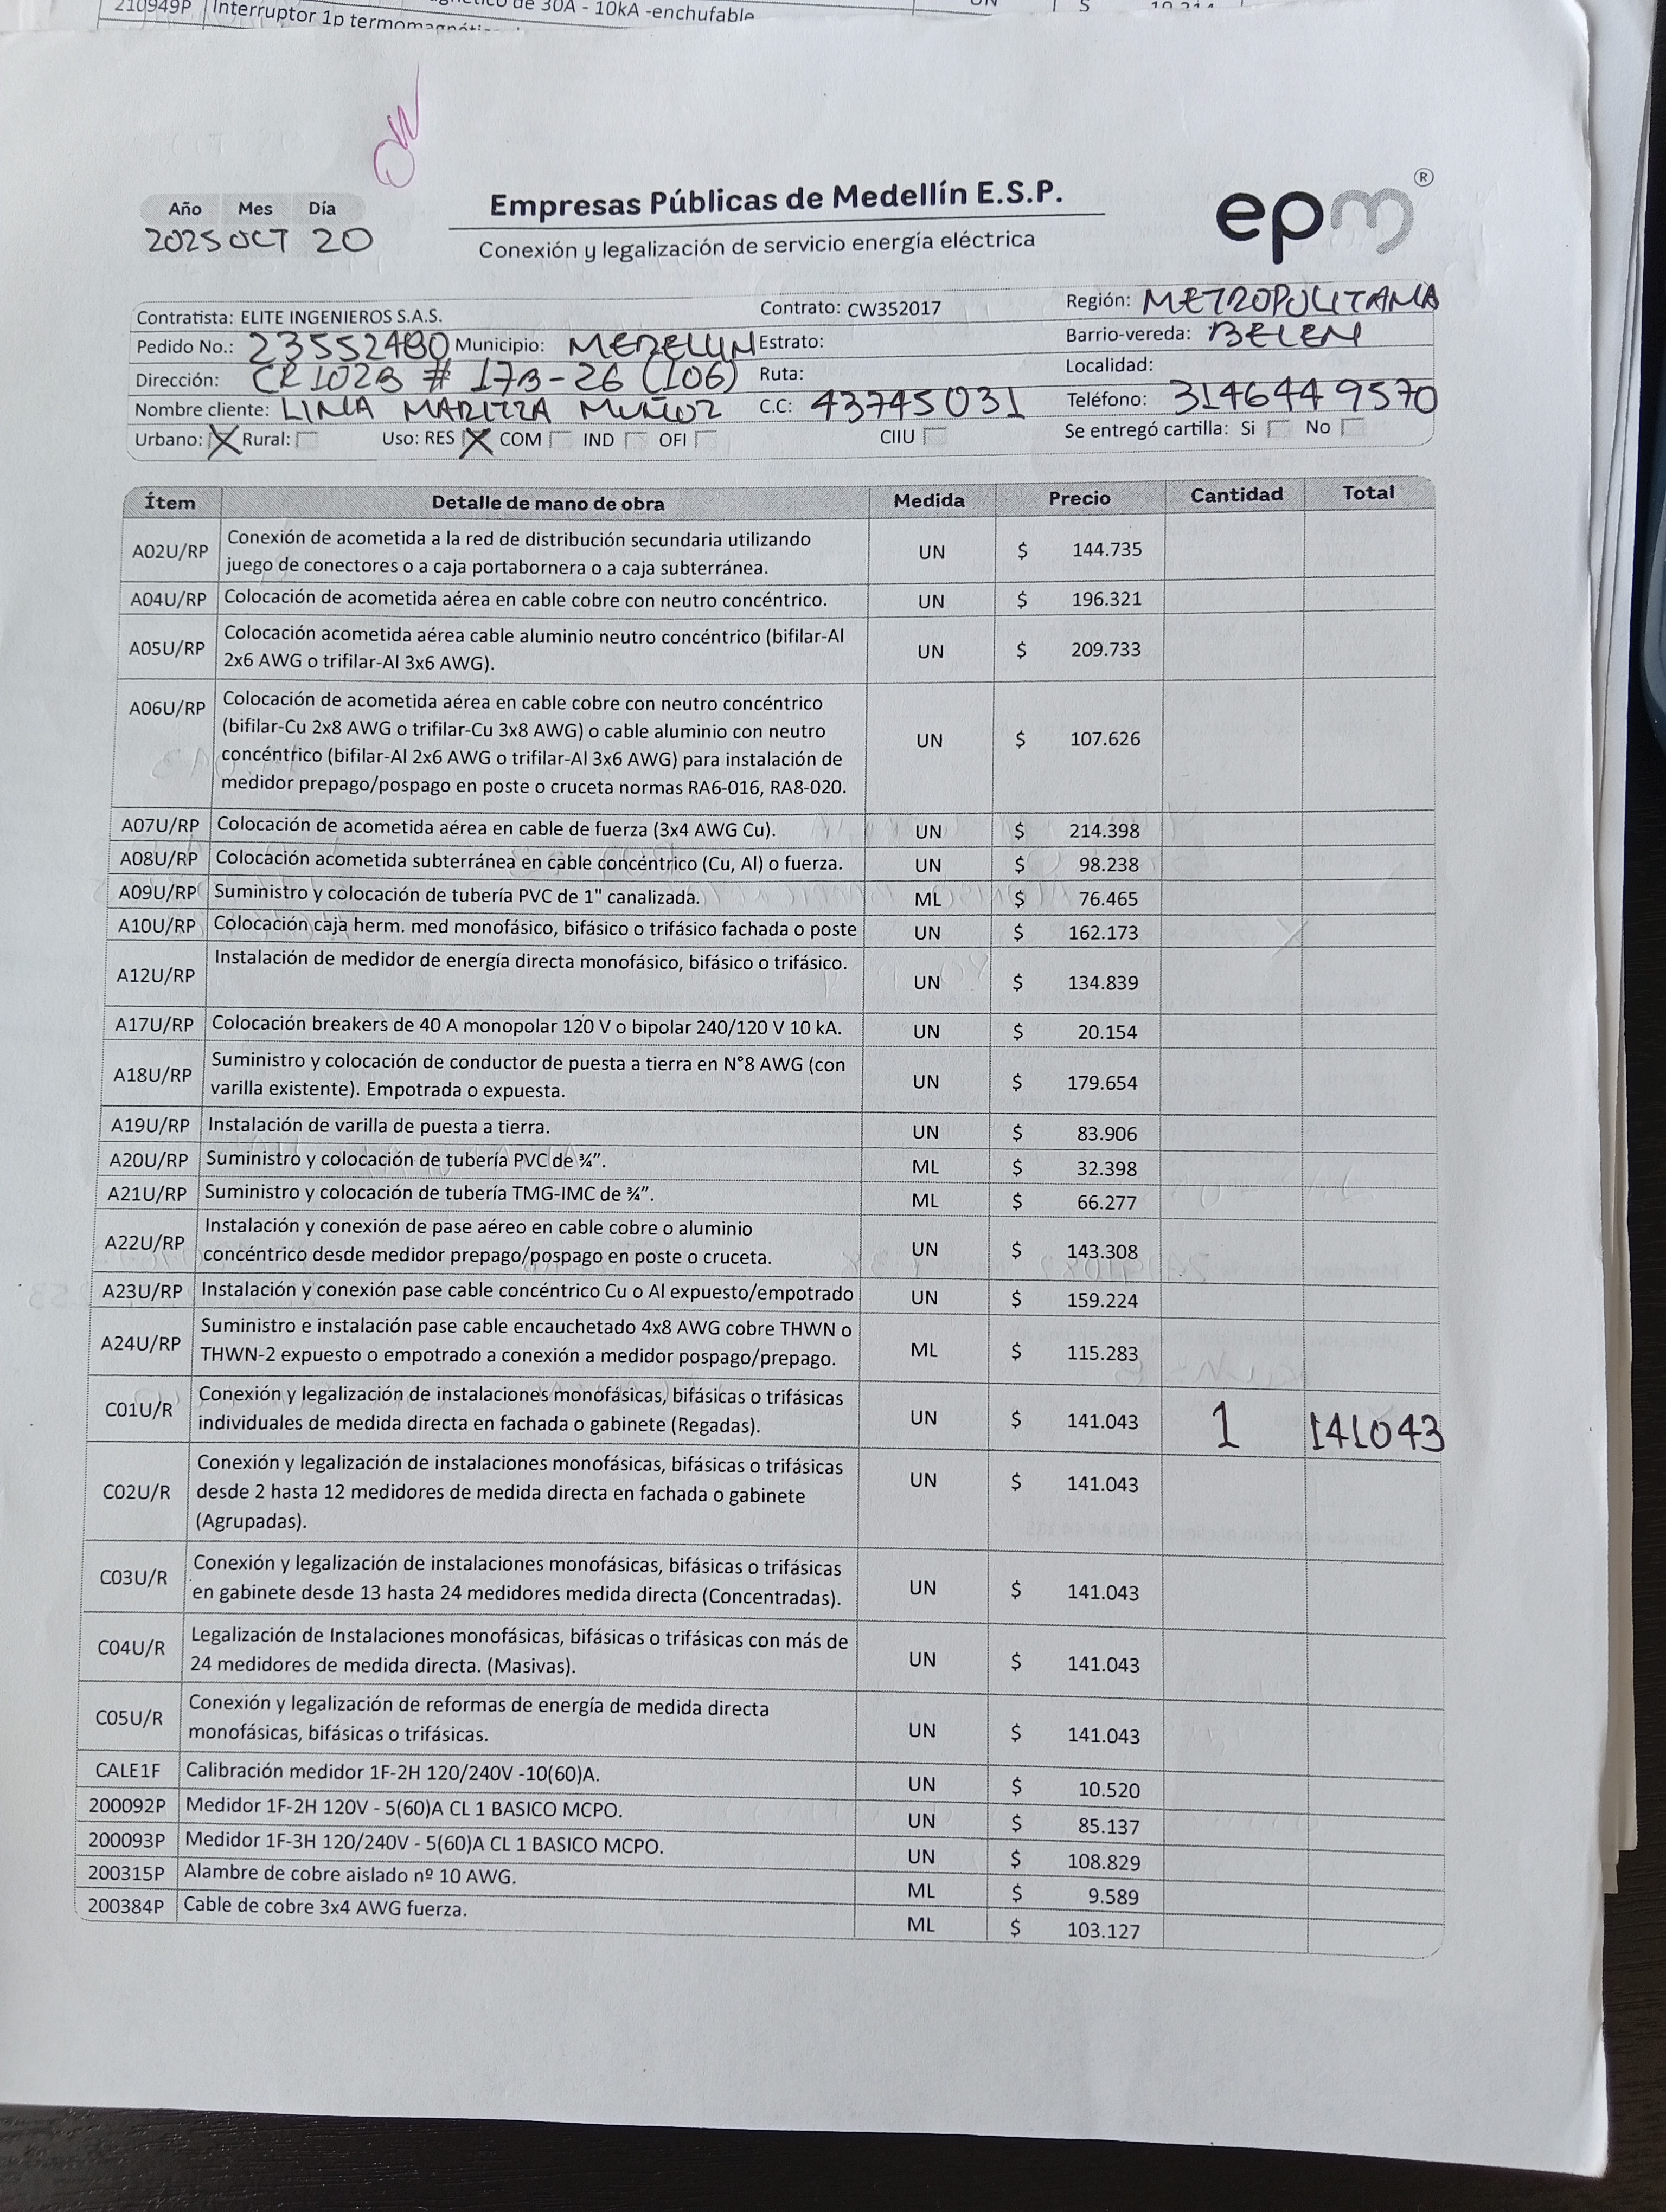 210949P Interruptor 1p termomagnéti
de 30A - 10kA -enchufable
Año Mes Día
2025 OCT 20
Empresas Públicas de Medellín E.S.P.
Conexión y legalización de servicio energía eléctrica
epm®
Contratista: ELITE INGENIEROS S.A.S. Contrato: CW352017 Región: METROPOLITANA
Pedido No.: 23552480 Municipio: MEDELLIN Estrato: Barrio-vereda: BELEN
Dirección: CR 102B # 17B-26 (106) Ruta: Localidad:
Nombre cliente: LINA MARITZA MUÑOZ C.C: 43745031 Teléfono: 3146449570
Urbano: X Rural: Uso: RES X COM IND OFI CIIU Se entregó cartilla: Si No
Ítem Detalle de mano de obra Medida Precio Cantidad Total
A02U/RP Conexión de acometida a la red de distribución secundaria utilizando juego de conectores o a caja portabornera o a caja subterránea. UN $ 144.735
A04U/RP Colocación de acometida aérea en cable cobre con neutro concéntrico. UN $ 196.321
A05U/RP Colocación acometida aérea cable aluminio neutro concéntrico (bifilar-Al 2x6 AWG o trifilar-Al 3x6 AWG). UN $ 209.733
A06U/RP Colocación de acometida aérea en cable cobre con neutro concéntrico (bifilar-Cu 2x8 AWG o trifilar-Cu 3x8 AWG) o cable aluminio con neutro concéntrico (bifilar-Al 2x6 AWG o trifilar-Al 3x6 AWG) para instalación de medidor prepago/pospago en poste o cruceta normas RA6-016, RA8-020. UN $ 107.626
A07U/RP Colocación de acometida aérea en cable de fuerza (3x4 AWG Cu). UN $ 214.398
A08U/RP Colocación acometida subterránea en cable concéntrico (Cu, Al) o fuerza. UN $ 98.238
A09U/RP Suministro y colocación de tubería PVC de 1" canalizada. ML $ 76.465
A10U/RP Colocación caja herm. med monofásico, bifásico o trifásico fachada o poste UN $ 162.173
A12U/RP Instalación de medidor de energía directa monofásico, bifásico o trifásico. UN $ 134.839
A17U/RP Colocación breakers de 40 A monopolar 120 V o bipolar 240/120 V 10 kA. UN $ 20.154
A18U/RP Suministro y colocación de conductor de puesta a tierra en N°8 AWG (con varilla existente). Empotrada o expuesta. UN $ 179.654
A19U/RP Instalación de varilla de puesta a tierra. UN $ 83.906
A20U/RP Suministro y colocación de tubería PVC de ¾”. ML $ 32.398
A21U/RP Suministro y colocación de tubería TMG-IMC de ¾”. ML $ 66.277
A22U/RP Instalación y conexión de pase aéreo en cable cobre o aluminio concéntrico desde medidor prepago/pospago en poste o cruceta. UN $ 143.308
A23U/RP Instalación y conexión pase cable concéntrico Cu o Al expuesto/empotrado UN $ 159.224
A24U/RP Suministro e instalación pase cable encauchetado 4x8 AWG cobre THWN o THWN-2 expuesto o empotrado a conexión a medidor pospago/prepago. ML $ 115.283
C01U/R Conexión y legalización de instalaciones monofásicas, bifásicas o trifásicas individuales de medida directa en fachada o gabinete (Regadas). UN $ 141.043 1 141043
C02U/R Conexión y legalización de instalaciones monofásicas, bifásicas o trifásicas desde 2 hasta 12 medidores de medida directa en fachada o gabinete (Agrupadas). UN $ 141.043
C03U/R Conexión y legalización de instalaciones monofásicas, bifásicas o trifásicas en gabinete desde 13 hasta 24 medidores medida directa (Concentradas). UN $ 141.043
C04U/R Legalización de Instalaciones monofásicas, bifásicas o trifásicas con más de 24 medidores de medida directa. (Masivas). UN $ 141.043
C05U/R Conexión y legalización de reformas de energía de medida directa monofásicas, bifásicas o trifásicas. UN $ 141.043
CALE1F Calibración medidor 1F-2H 120/240V -10(60)A. UN $ 10.520
200092P Medidor 1F-2H 120V - 5(60)A CL 1 BASICO MCPO. UN $ 85.137
200093P Medidor 1F-3H 120/240V - 5(60)A CL 1 BASICO MCPO. UN $ 108.829
200315P Alambre de cobre aislado nº 10 AWG. ML $ 9.589
200384P Cable de cobre 3x4 AWG fuerza. ML $ 103.127